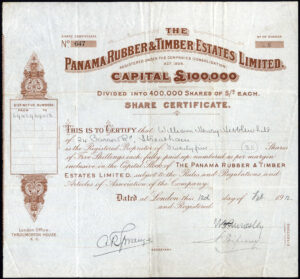 SHARE CERTIFICATE.
Nº 647
THE
PANAMA RUBBER & TIMBER ESTATES LIMITED.
REGISTERED UNDER THE COMPANIES CONSOLIDATION
ACT 1908.
CAPITAL £100,000
DIVIDED INTO 400,000 SHARES OF 5/- EACH.
SHARE CERTIFICATE.
DISTINCTIVE NUMBERS
THIS IS TO CERTIFY that William Henry
of Streatham
is the Registered Proprietor of Shares
of Five Shillings each, fully paid up, numbered as per margin
inclusive, in the Capital Stock of THE PANAMA RUBBER & TIMBER
ESTATES LIMITED, subject to the Rules and Regulations, and
Articles of Association of the Company.
Dated at London this day of Feb 1912
and Registered.
London Office:
THROGMORTON HOUSE
E.C.